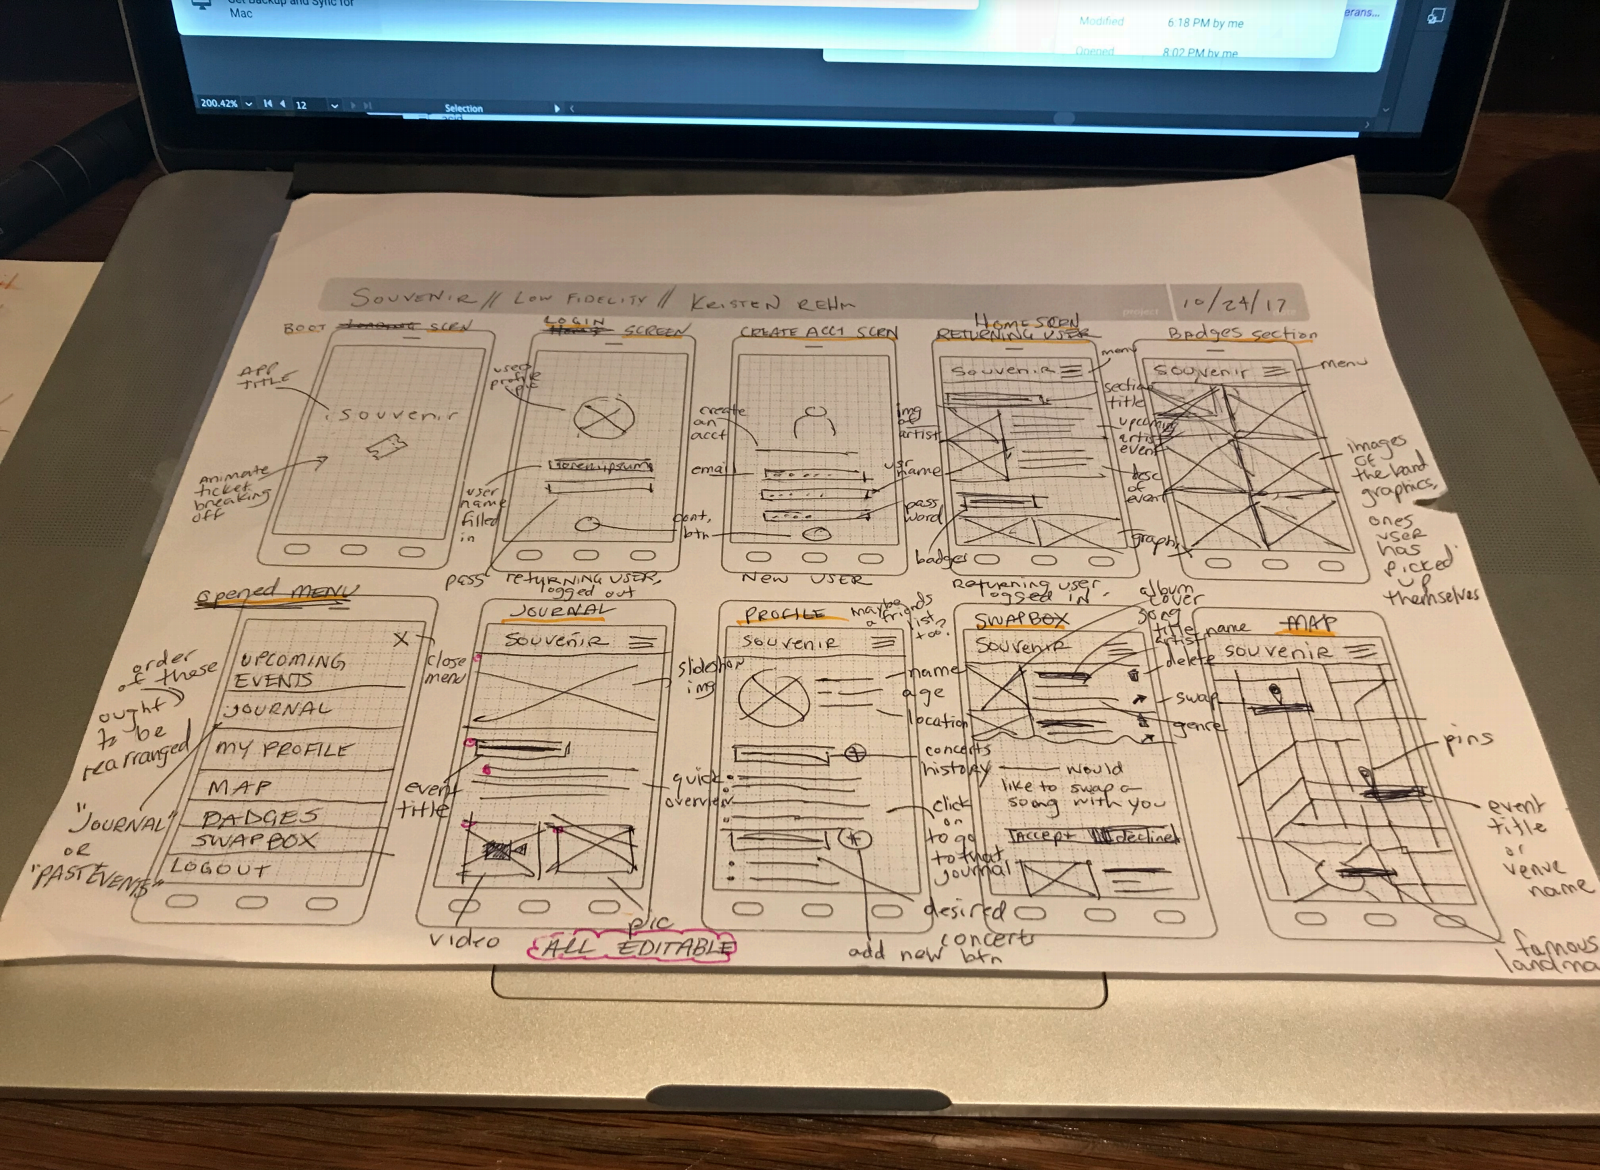 Get Backup and Sync for
Mac
Modified 6:18 PM by me
Opened 8:02 PM by me
erans...
200.42% 12 Selection
SOUVENIR // LOW FIDELITY // KRISTEN REHM
10/24/17
project
BOOT SCRN
APP
TITLE
souvenir
Animate
ticket
breaking
off
LOGIN
SCREEN
users
profile
pic
loremipsum
user
name
filled
in
pass
cont.
btn
returning user,
logged out
CREATE ACCT SCRN
create
an
acct
email
usr
name
pass
word
NEW USER
HOMESCRN
RETURNING USER
menu
souvenir
section
title
img
of
artist
upcoming
artist
event
desc
of
event
badges
graphic
Returning user
logged in.
Badges section
souvenir
menu
images
of
the band
graphics,
ones
user
has
picked
up
themselves
opened MENU
X
close
menu
order
of these
ought
to be
rearranged
UPCOMING
EVENTS
JOURNAL
MY PROFILE
MAP
BADGES
SWAPBOX
LOGOUT
"JOURNAL"
OR
"PAST EVENTS"
JOURNAL
SOUVENIR
slideshow
img
event
title
quick
overview
video
pic
ALL EDITABLE
PROFILE
maybe
a friends
list
too?
SOUVENIR
name
age
location
concerts
history
click
on
to go
to that
journal
desired
concerts
add new btn
SWAPBOX
SOUVENIR
album
cover
song
title
artist name
delete
swap
genre
would
like to swap a
song with you
Accept decline
MAP
souvenir
pins
event
title
or
venue
name
famous
landma